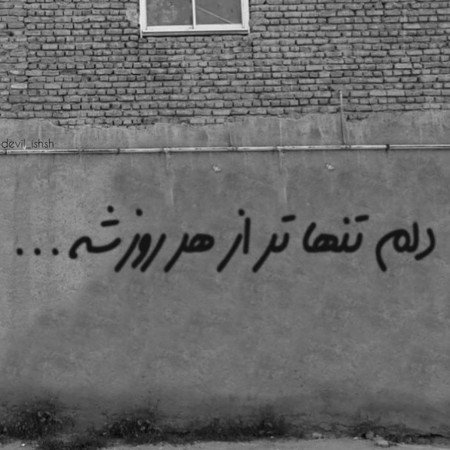 devil_ishsh
دلم تنها تر از هر روزشه ...